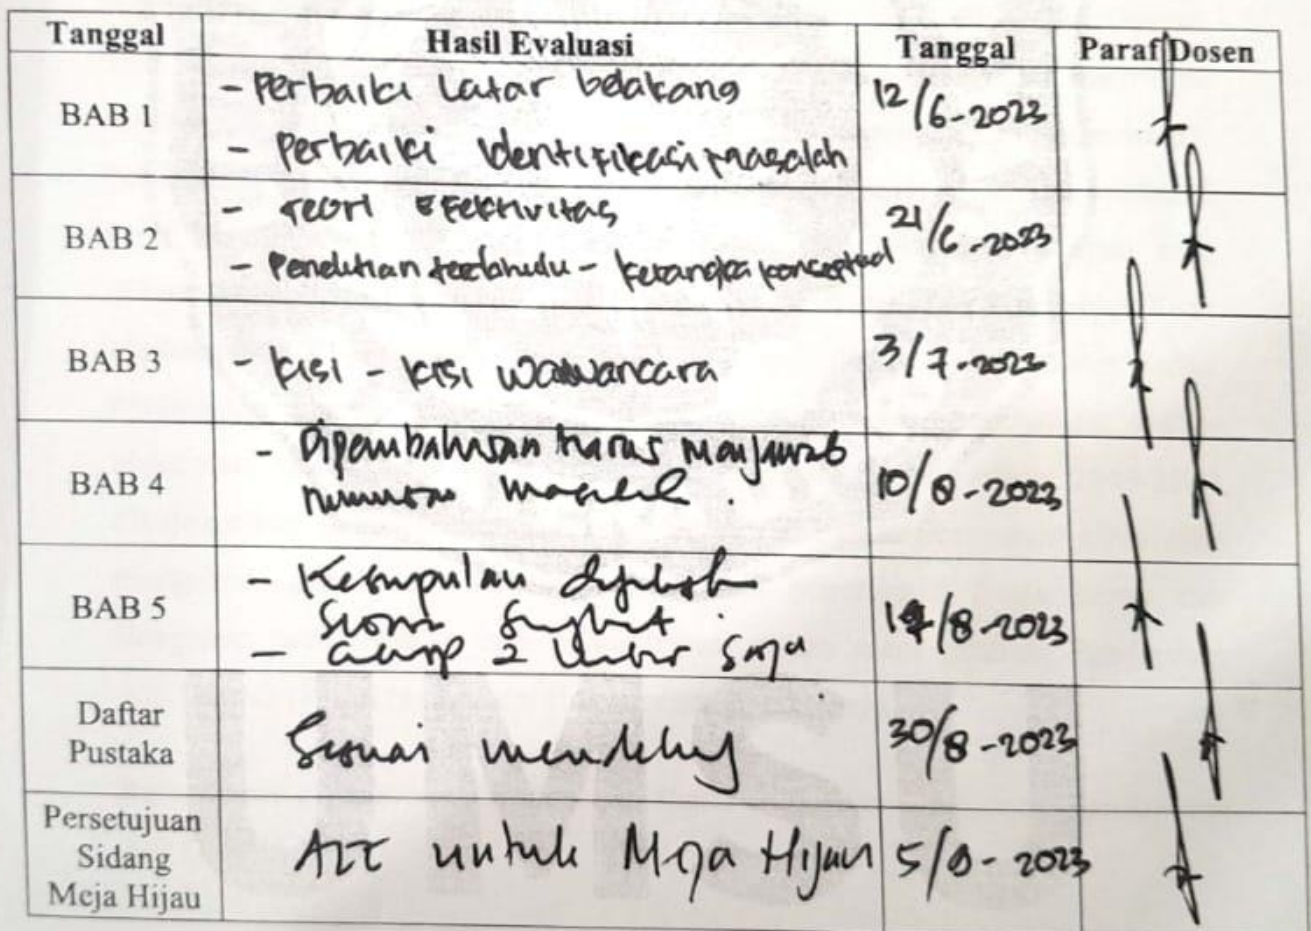 Tanggal Hasil Evaluasi Tanggal Paraf Dosen
BAB 1
- Perbaiki Latar belakang
- Perbaiki Identifikasi Masalah
12/6-2023
BAB 2
- Teori Efektivitas
- Penelitian terdahulu - kerangka konseptual
21/6-2023
BAB 3
- Kisi - kisi Wawancara
3/7-2023
BAB 4
- Dipembahasan harus menjawab
rumusan masalah.
10/8-2023
BAB 5
- Kesimpulan
singkat.
- 2 saja
/8-2023
Daftar
Pustaka
Sesuai mendeley
30/8-2023
Persetujuan
Sidang
Meja Hijau
Acc untuk Meja Hijau
2023
UMSU